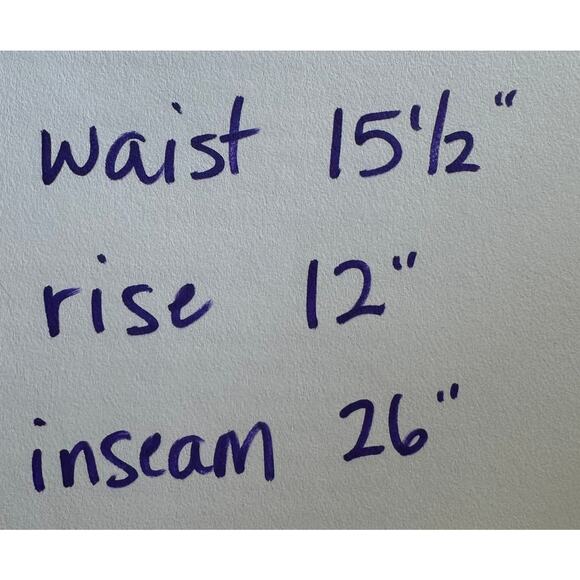 waist 15½"
rise 12"
inseam 26"